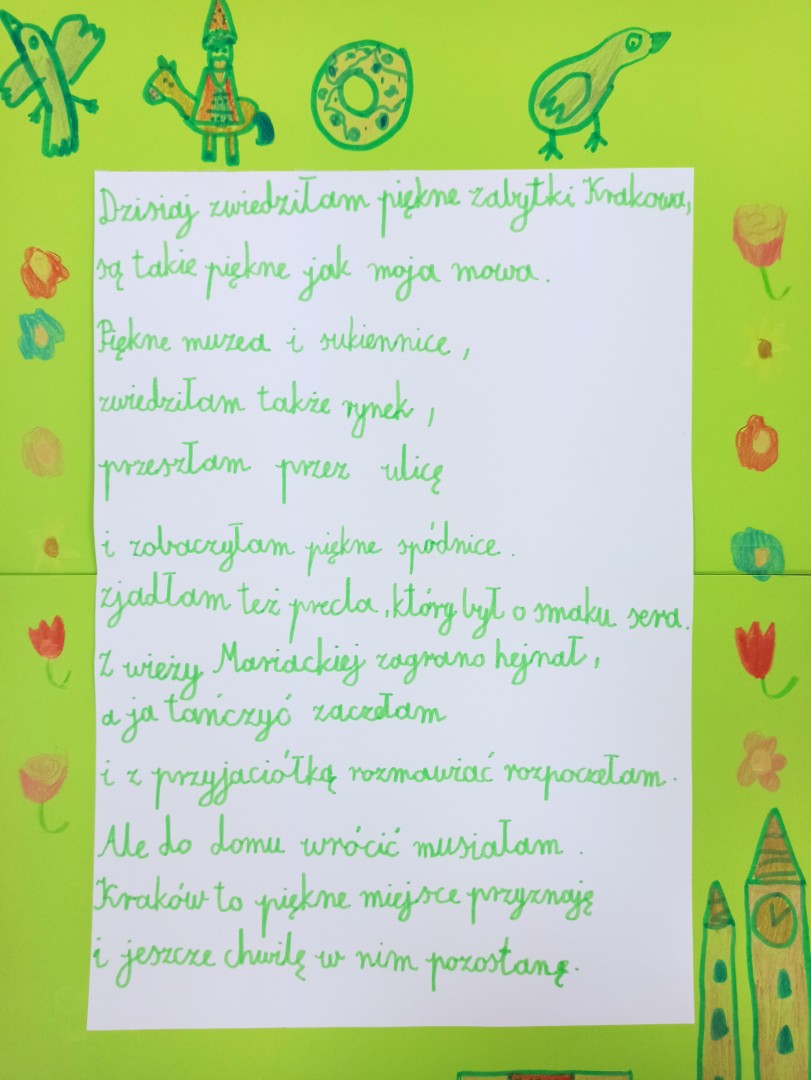 Dzisiaj zwiedziłam piękne zabytki Krakowa,
są takie piękne jak moja mowa.
Piękne muzea i sukiennice,
zwiedziłam także rynek,
przeszłam przez ulicę
i zobaczyłam piękne spódnice.
zjadłam też precla, który był o smaku sera.
Z wieży Mariackiej zagrano hejnał,
a ja tańczyć zaczełam
i z przyjaciółką rozmawiać rozpoczełam.
Ale do domu wrócić musiałam.
Kraków to piękne miejsce przyznaję
i jeszcze chwilę w nim pozostanę.